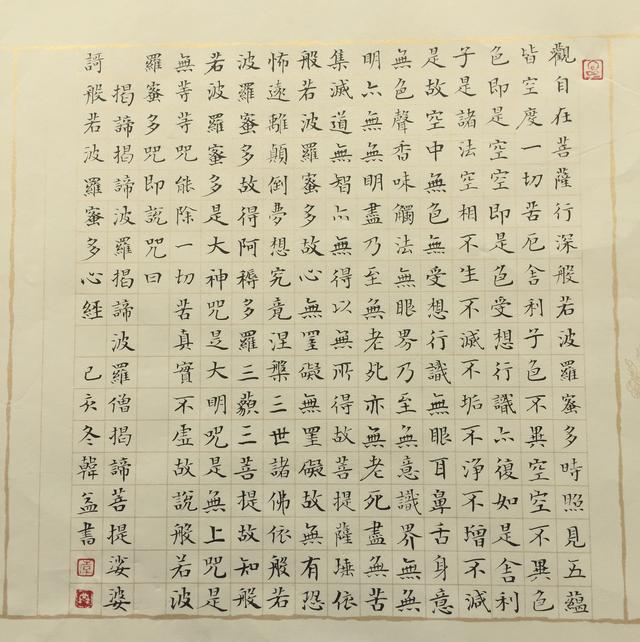 觀自在菩薩行深般若波羅蜜多時照見五蘊
皆空度一切苦厄舍利子色不異空空不異色
色即是空空即是色受想行識亦復如是舍利
子是諸法空相不生不滅不垢不淨不增不減
是故空中無色無受想行識無眼耳鼻舌身意
無色聲香味觸法無眼界乃至無意識界無無
明亦無無明盡乃至無老死亦無老死盡無苦
集滅道無智亦無得以無所得故菩提薩埵依
般若波羅蜜多故心無罣礙無罣礙故無有恐
怖遠離顛倒夢想究竟涅槃三世諸佛依般若
波羅蜜多故得阿耨多羅三藐三菩提故知般
若波羅蜜多是大神咒是大明咒是無上咒是
無等等咒能除一切苦真實不虛故說般若波
羅蜜多咒即說咒曰
揭諦揭諦波羅揭諦波羅僧揭諦菩提娑婆
謌般若波羅蜜多心經 己亥冬韓書